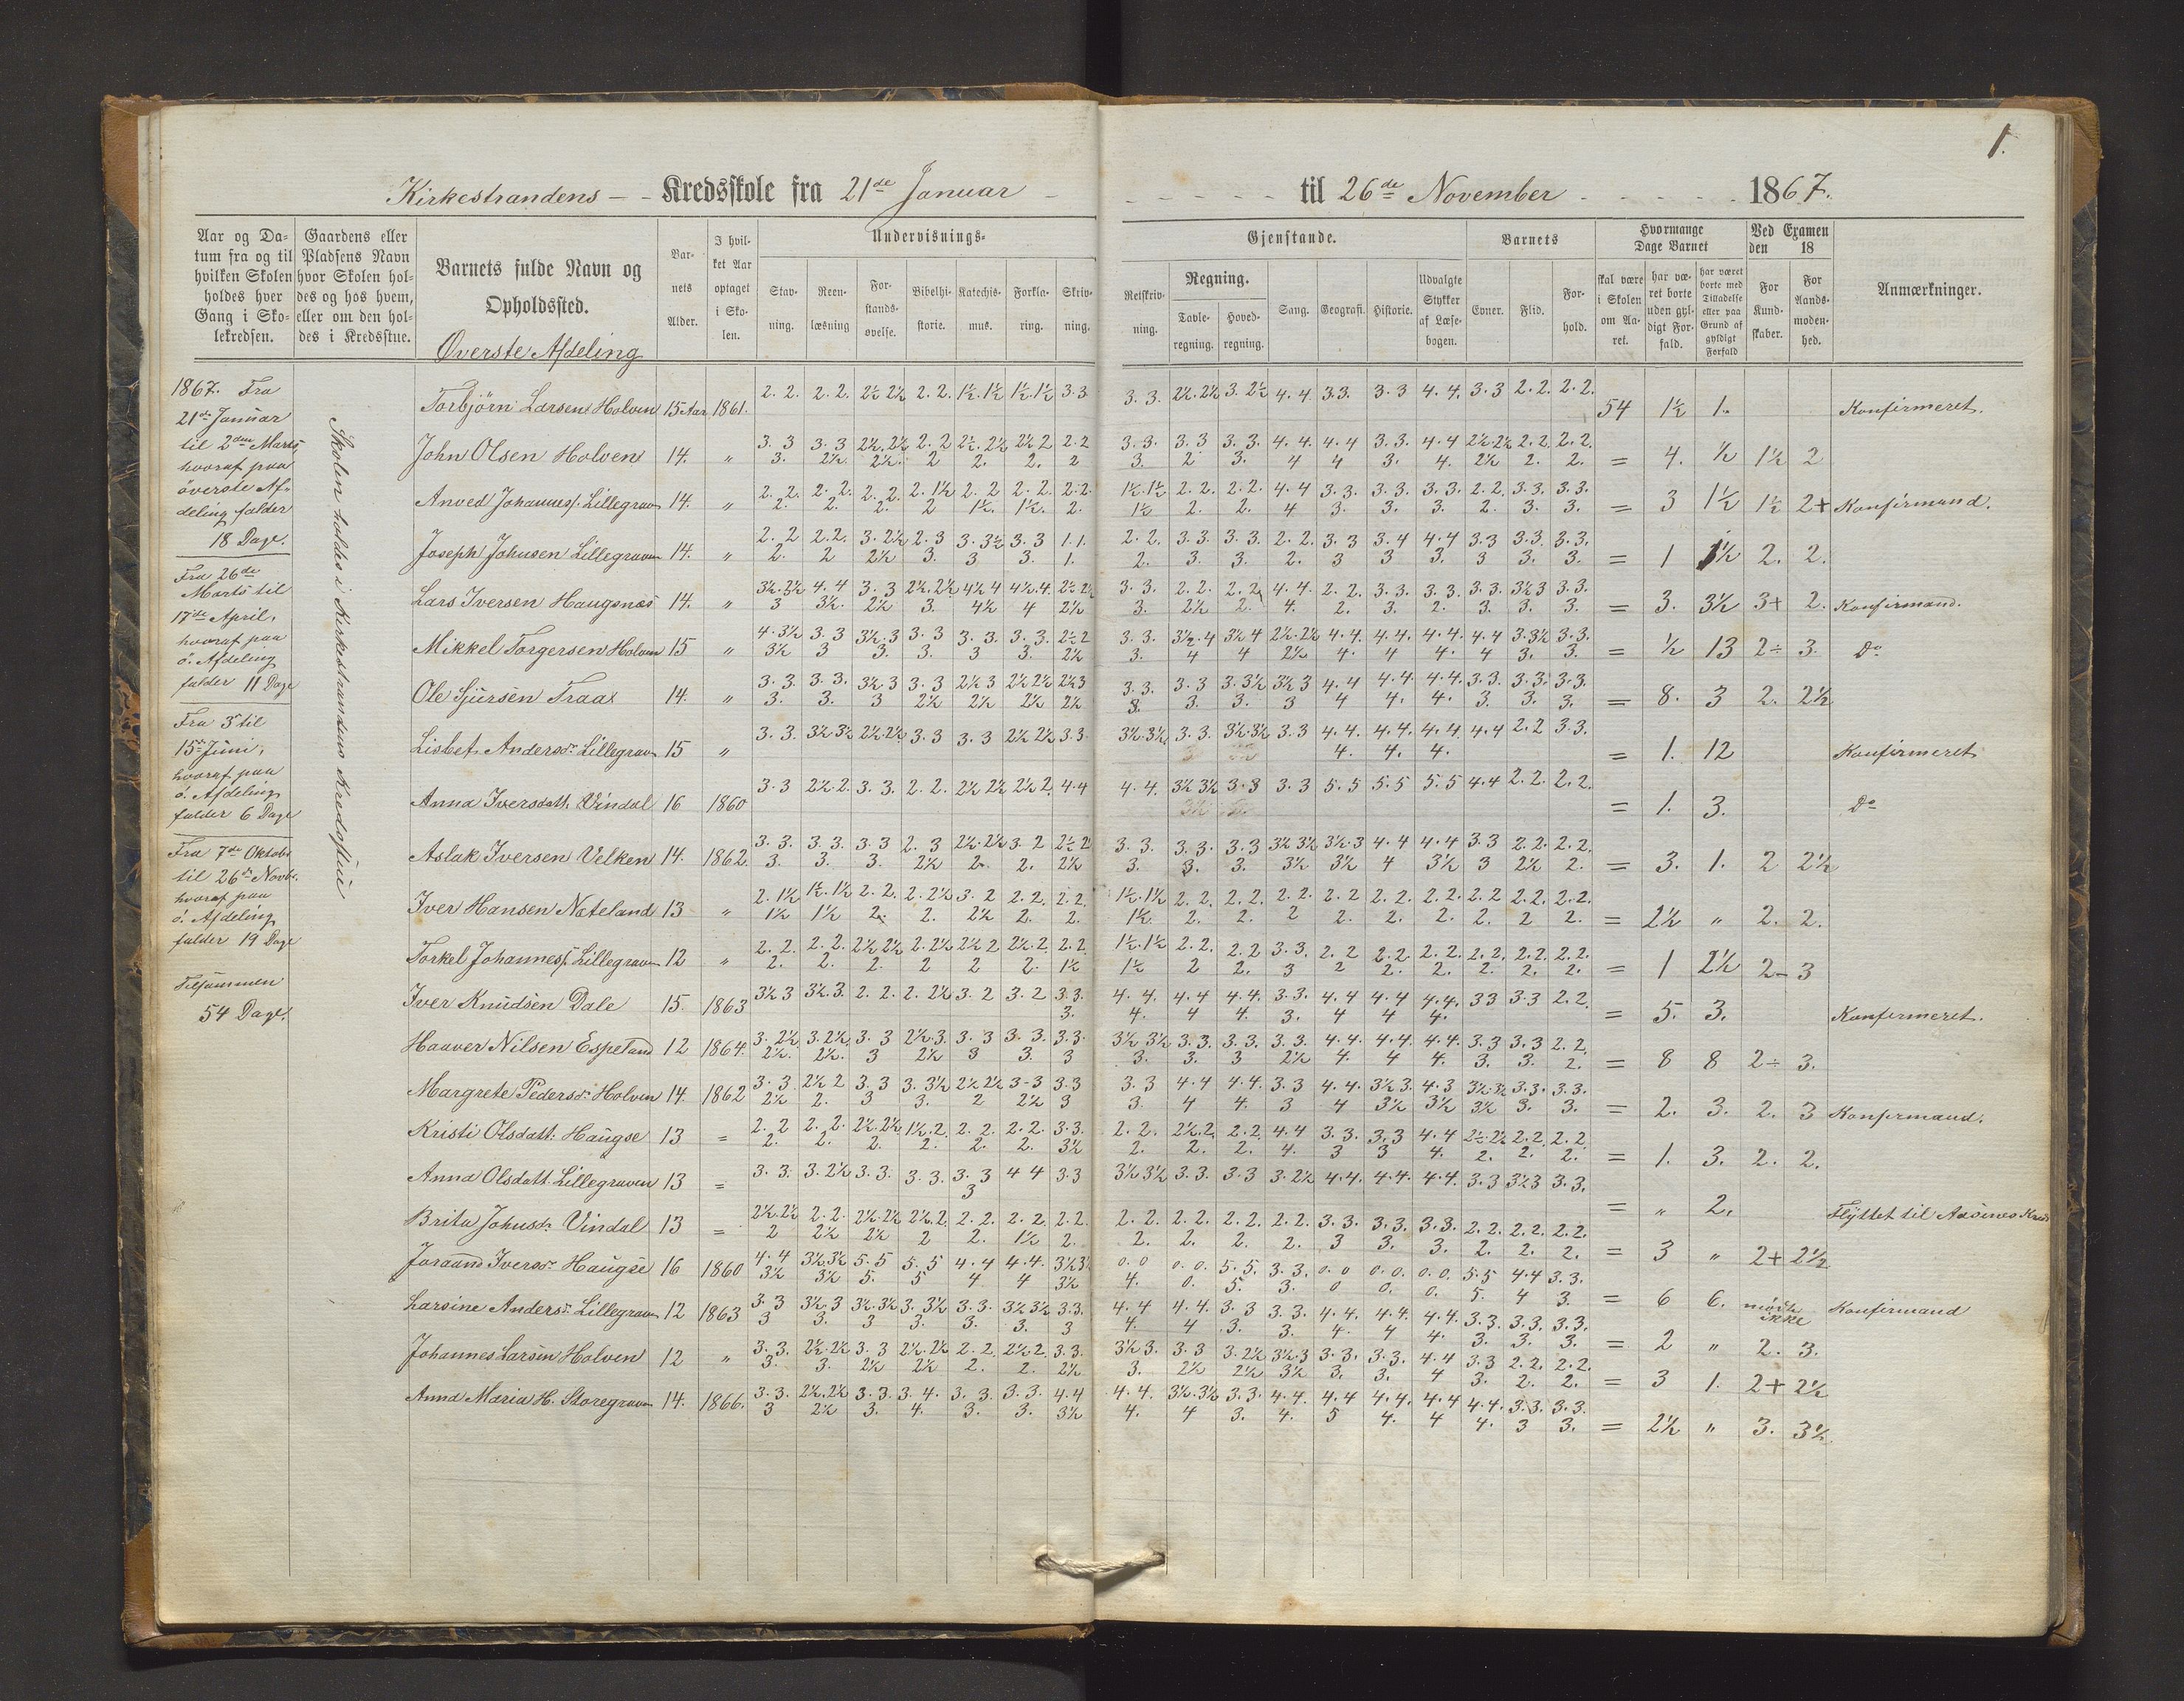 1.
Kirkestrandens - - Kredsskole fra 21de Januar - - - - - - til 26de November - - - - - 1867.
Aar og Da-
tum fra og til
hvilken Skolen
holdes hver
Gang i Sko-
lekredsen.
Gaardens eller
Pladsens Navn
hvor Skolen hol-
des og hos hvem,
eller om den hol-
des i Kredsstue.
Barnets fulde Navn og
Opholdssted.
Øverste Afdeling
Bar-
nets
Alder.
I hvil-
ket Aar
optaget
i Sko-
len.
Undervisnings-
Stav-
ning.
Reen-
læsning
For-
stands-
øvelse.
Bibelhi-
storie.
Katechis-
mus.
Forkla-
ring.
Skriv-
ning.
Gjenstande.
Retskriv-
ning.
Regning.
Tavle-
regning.
Hoved-
regning.
Sang.
Geografi.
Historie.
Udvalgte
Stykker
af Læse-
bogen.
Barnets
Evner.
Flid.
For-
hold.
Hvormange
Dage Barnet
skal være
i Skolen
om Aa-
ret.
har væ-
ret borte
uden gyl-
digt For-
fald.
har været
borte med
Tilladelse
eller paa
Grund af
gyldigt
Forfald
Ved Examen
den 18
For
Kund-
skaber.
For
Aands-
moden-
hed.
Anmærkninger.
1867. Fra
21de Januar
til 2den Marts,
hvoraf paa
överste Af-
deling falder
18 Dage.
Fra 26de
Marts til
17de April,
hvoraf paa
ö. Afdeling
falder 11 Dage
Fra 3 til
15de Juni,
hvoraf paa
ö. Afdeling
falder 6 Dage
Fra 7de Oktobr
til 26de Novbr.
hvoraf paa
ö. Afdeling
falder 19 Dage
Tilsammen
54 Dage.
Skolen holdes i Kirkestrandens Kredsstue
Torbjörn Larsen Holven 15 Aar 1861. 2. 2. 2. 2. 2½ 2½ 2. 2. 1½ 1½ 1½ 1½ 3. 3. 3. 3. 2½ 2½ 3. 2½ 4. 4. 3.3. 3. 3 4. 4. 3. 3 2. 2. 2. 2. 54 1½ 1. Konfirmeret.
John Olsen Holven 14. " 3. 3 3. 3 2½. 2½ 2. 2 2½. 2½ 2½ 2 2. 2 3. 3. 3. 3 3. 3. 4. 4. 4. 4 3. 3. 4. 4 2½ 2½ 2. 2. 2. 2.
3. 2½. 2½. 2 2. 2. 2 3. 2 3. 4 4 3. 4. 2½ 2. 2. = 4. ½ 1½ 2
Anved Johannesf. Lillegraven 14. " 2. 2. 2. 2. 2. 2. 2. 1½ 2. 2 2. 2. 2. 2. 1½. 1½ 2. 2. 2. 2. 4. 4 3. 3. 3. 3. 3. 3. 2. 2. 3. 3. 3. 3.
2. 2. 2. 2 1½. 1½. 2. 1½ 2. 2. 4 3. 3. 3. 2. 3. 3. = 3 1½ 1½ 2+ Konfirmand.
Joseph Johnsen Lillegraven 14. " 2. 2 2. 2. 3. 2½ 2. 3 3. 3½ 3. 3 1. 1. 2. 2. 3. 3. 3. 3. 2. 2. 3. 3 3. 4 4. 4 3. 3 3. 3. 3. 3.
2. 2 2½ 3. 3 3. 1. 2. 3. 3. 2. 3 3 3. 3 3. 3. = 1 1½ 2. 2.
Lars Iversen Haugsnæs 14. " 3½. 3½ 4. 4 3. 3 2½. 2½ 4½ 4 4½. 4. 2½ 2½ 3. 3. 2. 2. 2. 2 4. 4. 2. 2. 3. 3. 3. 3. 3. 3. 3½ 3 3. 3.
3 3½. 2½ 3. 4½ 4 2½ 3. 2½ 2. 4. 2. 3. 2. 3. 3. 3. = 3. 3½ 3+ 2. Konfirmand.
Mikkel Torgersen Holven 15 " 4. 3½ 3. 3 3½. 3 3. 3 3. 3. 3. 3. 2½ 2 3. 3. 3½. 4 3½ 4 2½. 2½ 4. 4. 4. 4. 4. 4. 4. 4 3. 3½ 3. 3.
3½ 3 3. 3. 3 3. 2½ 3. 4 4 2½ 4. 4 4. 4 3. 3. = ½ 13 2÷ 3. Do
Ole Sjursen Traa 14. " 3. 3. 3. 3. 3½ 3 3. 3 2½ 3 2½ 2½ 2½ 3 3. 3. 3. 3 3. 3½ 3½ 3 4. 4 4. 4 4. 4. 3. 3. 3. 3. 3. 3.
3. 3. 3 2½ 2½ 2½ 2½ 3. 3. 3. 3 4 4. 4. 3. 3. 3. = 8. 3 2. 2½
Lisbet Andersdr. Lillegraven 15 " 3. 3. 3½ 3½ 2½. 2½ 3. 3 3. 3 2½ 2½ 3. 3. 3½. 3½ 3. 3. 3½. 3½ 3. 3 4. 4. 4. 4. 4. 4 4. 4 2. 2 3. 3.
4. 4. 4. = 1. 12 Konfirmeret
Anna Iversdatt. Vindal 16 1860 3. 3 2½. 2. 3. 3. 2. 2. 2½ 2½ 2½ 2. 4. 4 4. 4. 3½ 3½ 3. 3 3. 3 5. 5 5. 5 5. 5 4. 4 2. 2. 2. 2.
= 1. 3. Do
Aslak Iversen Velken 14. 1862. 3. 3. 3. 3. 3. 3 2. 3 2½. 2½ 3. 2 2½ 2 3. 3. 3. 3. 3. 3 3½ 3½ 3½. 3 4. 4 4. 4 3. 3 2. 2. 2. 2.
3. 3. 3. 2½ 2. 2. 2½ 3. 3. 3. 3½ 3½ 4 3½ 3 2½ 2. = 3. 1. 2 2½
Iver Hansen Næteland 13 " 2. 1½ 1½. 1½ 2. 2. 2. 2½ 3. 2 2. 2. 2. 2. 1½. 1½ 2. 2. 2. 2. 2. 2. 2. 2 2. 2. 2. 2. 2. 2 2. 2. 2. 2.
1½ 1½ 2. 2. 2½ 2. 2. 1½ 2. 2. 2 2. 2. 2. 2. 2 2. = 2½ " 2. 2.
Torkel Johannesf. Lillegraven 12 " 2. 2. 2. 2. 2½ 2½ 2. 2½ 2½ 2 2½. 2 2. 2 1½. 1½ 2. 2. 2. 2 3. 3. 2. 2 2. 2. 2. 2. 2. 2. 2. 2. 2. 2.
2. 2. 2. 2 2 2. 1½ 1½ 2 2. 3 2 2. 2. 2. 2. 2. = 1 2½ 2- 3
Iver Knudsen Dale 15. 1863 3½ 3 3½. 3. 2. 2. 2. 2½ 3. 2 3. 2 3. 3. 4. 4. 4. 4 4. 4. 3. 3. 4. 4 4. 4 4. 4. 3 3 3. 3 2. 2.
3. 4. 4 4. 3. 4 4 4. = 5. 3. Konfirmeret.
Haaver Nilsen Espeland 12 1864. 3. 2½ 3. 2½. 3. 3 2½. 3. 3. 3 3. 3. 3. 3. 3½ 3½ 3. 3. 3. 3. 3. 3. 4. 4. 4. 4. 4. 4. 3. 3 3. 3 2. 2.
2½. 2½. 3 2½ 3 3. 3 3. 3. 3 2½ 4. 4 4. 3. 3. 2. = 8 8 2÷ 3.
Margrete Pedersdr. Holven 14. 1862 3. 3 2½ 2 3. 3 3. 3½ 2½ 2½ 3-3 3. 3 3. 3 4. 4 4. 4. 3. 3 4. 4. 3½ 3. 4. 3 3½. 3½ 3. 3. 3. 3.
2½ 2. 3 3. 2 2½ 3 3. 4 4. 3 4 3½ 3½ 3½ 3. 3. = 2. 3. 2. 3 Konfirmand.
Kristi Olsdatt. Haugse 13 = 2. 2 2. 2. 2½. 2½ 1½. 2. 2. 2. 2. 2. 3. 3. 2. 2. 2½. 2. 2. 2 4. 4 3. 3. 3. 3 4. 4 2½. 2½ 2. 2. 2. 2
2. 2. 2. 2. 2. 2. 3½ 2. 2. 2. 4. 3 3 4. 2. 2. 2. = 1. 3. 2. 2.
Anna Olsdatt. Lillegraven 13 = 3. 3. 3. 2½ 3. 3. 3. 3. 3. 3 4 4 3. 3 3½ 3½ 3. 3. 3. 3 3. 2½ 4. 4. 4. 4. 4. 4. 3. 3 3½ 3 3. 3.
3 = " 2. Flyttet til Kreds
Brita Johnsdr. Vindal 13 = 2½. 2½ 2. 2. 2½. 2½ 2½. 2. 2. 2. 2. 2. 2. 2. 2. 2. 2. 2. 2. 2. 2. 2. 3. 3. 3. 3. 3. 3. 2. 2. 2. 2. 2. 2.
2 2½ 2½ 2 2. 1½ 2. 2. 2. 2. 2. 3 3. 3. 2. 2. 2. = 3 " 2+ 2½
Joraand Iversdr. Haugse 16 1860 4. 4 3½. 3½ 5. 5 5. 5 4. 4 4. 4. 3½ 3½ 0. 0 0. 0. 5. 5. 3. 3. 0. 0 0. 0. 0. 0. 5. 5 4. 4 3. 3.
3½ 3½ 5. 5 4 4 3½ 4. 0. 5. 3. 0 0. 0. 5. 4 3. = 6 6. mødte ikke Konfirmand
Larsine Andersdr. Lillegraven 12 1863 3. 3 3½. 3 3½. 3½ 3. 3½ 3. 3. 3½ 3½ 3. 3. 4. 4 4. 4. 3. 3 3. 3. 4. 4. 4. 4. 4. 4. 3. 3. 3. 3. 3. 3.
3 3. 3 3. 3. 3. 3 4. 4 3. 3. 4. 4 4. 3. 3. 3. = 2 " 2. 3.
Johannes Larsen Holven 12 " 3. 3. 2½. 2½ 3. 3 2½. 2½ 2. 2. 2½. 2. 3. 3. 3½ 3. 3. 3 3. 2½ 3½. 3 3. 3. 3. 3. 4. 4 3. 3 2. 2. 2. 2.
3. 3. 2½ 2½ 2. 2. 2½ 3. 2½ 2½ 3½ 3. 3. 4 3. 2. 2. = 3 1. 2+ 2½
Anna Maria H. Storegraven 14. 1866. 3. 3. 2½. 2½ 3. 3. 3. 4. 3. 3. 3. 3. 4. 4 4. 4. 3½. 3½ 3. 3. 4. 4. 4. 4 4. 4. 4. 4 4. 4. 3. 3. 3. 3.
3 2½ 3. 4. 3. 3. 3½ 4. 4 3. 4. 5 4. 4 4. 3 3. = 2½ " 3. 3½